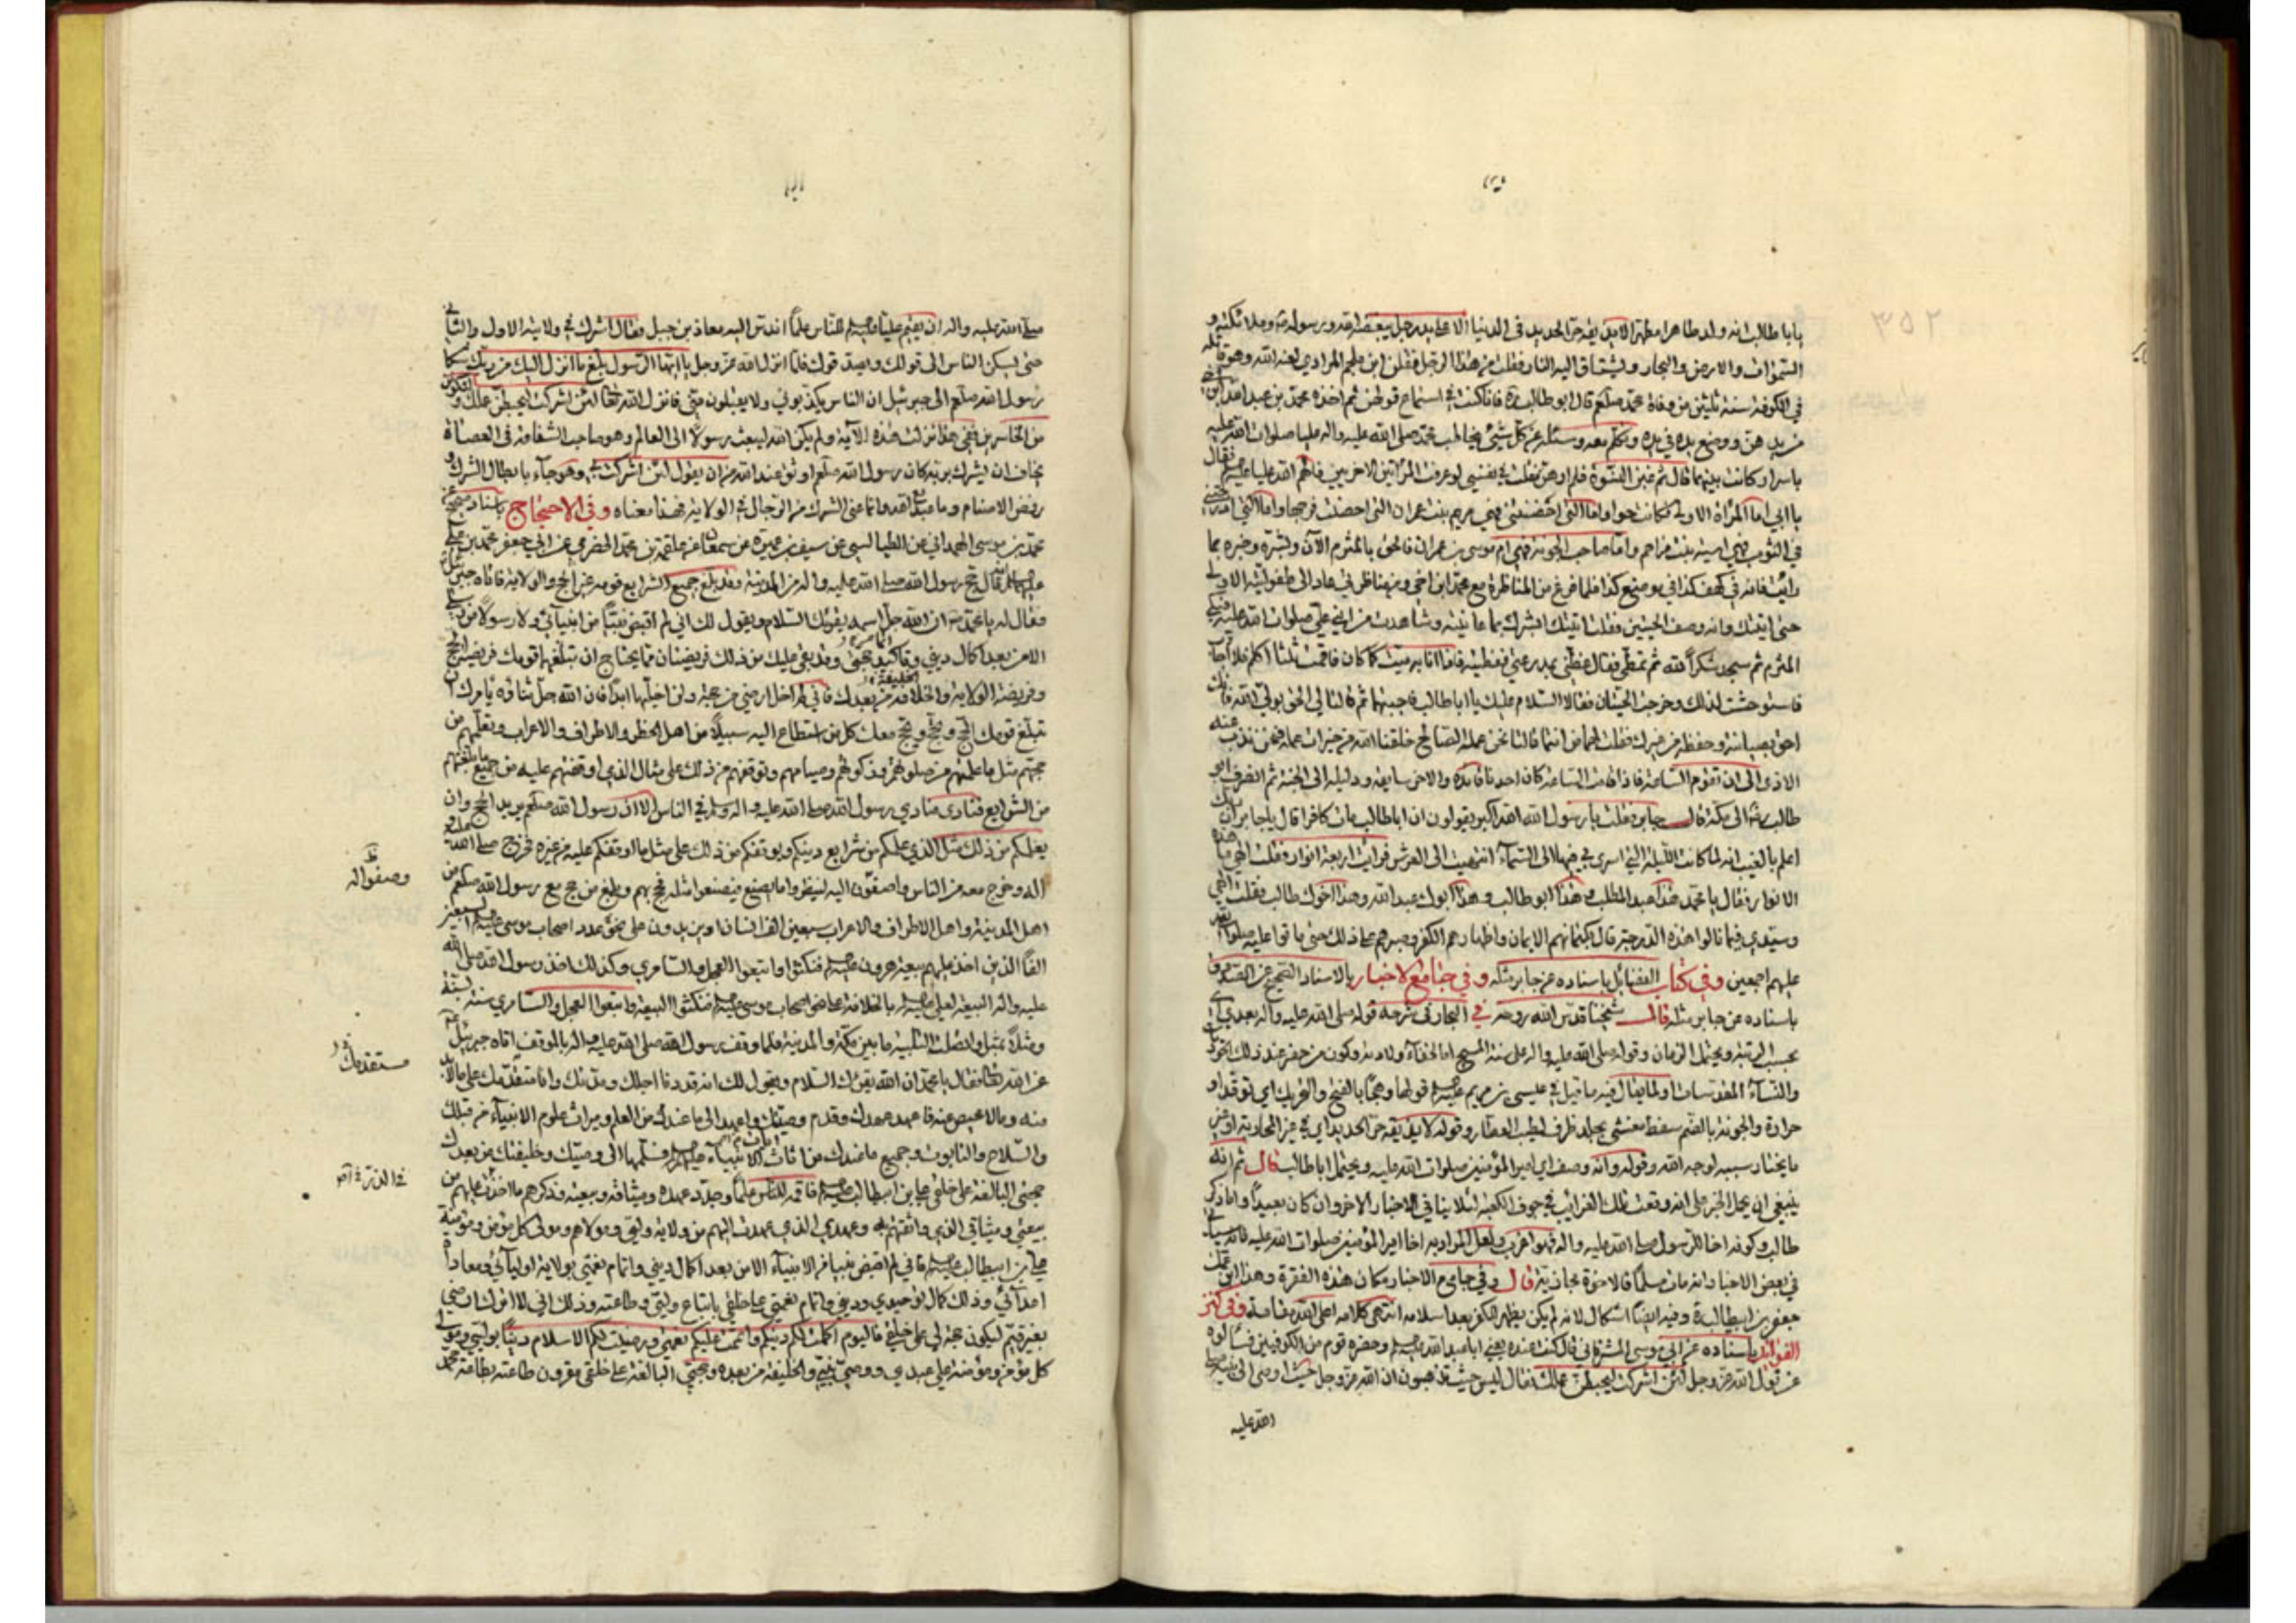 ٣٥٢
يا با طالب انه ولد طاهرا مطهرا لا يذيقه حر الحديد في الدنيا الا على يد رجل يبغضه الله ورسوله وملائكته و
السموات والارض والبحار وليشتاق اليه النار فقلت من هذا الرجل فقلن ابن ملجم المرادي لعنه الله وهو قاتله
في الكوفة سنة ثلثين من وفاة محمد صلعم قال ابو طالب فانا كنت في استماع قولهن ثم اخذه محمد بن عبد الله ابن اخي
من يدهن ووضع يده في يده وتكلم معه وسئله عن كل شيء فخاطب محمد صلى الله عليه واله عليا صلوات الله عليه
باسرار كانت بينهما قال ثم غبن النسوة فلم ارهن فقلت في نفسي لو عرفت المرأتين الاخريين فالهم الله عليا فقال
يا ابي اما المراة الاولى فكانت حوا واما التي احضنتني فهي مريم بنت عمران التي احصنت فرجها واما التي ادرجتني
في الثوب فهي اسية بنت مزاحم واما صاحب الجونة فهي ام موسى بن عمران فالحق بالمثرم الآن وبشره وخبره بما
رأيت فانه في كهف كذا في موضع كذا فلما فرغ من المناظرة مع محمد ابن اخي ومن مناظرتي عاد الى طفوليته الاولى
حتى اتيتك وانه وصف الحيتين فقلت اتيتك ابشرك بما عاينته وشاهدت من ابني علي صلوات الله عليه فبكى
المثرم ثم سجد شكرا لله ثم تمطى فقال غطني بمدرعتي فغطيته فاذا انا به ميت كما كان فاقمت ثلثا اكلم فلا اجاب
فاستوحشت لذلك وخرجت الحيتان فقالا السلام عليك يا ابا طالب فاجبتهما ثم قالتا لي الحق بولي الله فانك
احق بصيانته وحفظه من غيرك فقلت لهما من انتما قالتا نحن عمله الصالح خلقنا الله من خيرات عمله فنحن نذب عنه
الاذى الى ان تقوم الساعة فاذا قامت الساعة كان احدنا قائده والاخر سايقه ودليله الى الجنة ثم انصرف ابو
طالب الى مكة قال جابر فقلت يا رسول الله الله اكبر يقولون ان ابا طالب مات كافرا قال يا جابر ربك
اعلم بالغيب انه لما كانت الليلة التي اسري بي فيها الى السماء انتهيت الى العرش فرايت اربعة انوار فقلت الهي ما هذه
الانوار فقال يا محمد هذا عبد المطلب وهذا ابو طالب وهذا ابوك عبد الله وهذا اخوك طالب فقلت الهي
وسيدي فيما نالوا هذه الدرجة قال بكتمانهم الايمان واظهارهم الكفر وصبرهم على ذلك حتى ماتوا عليه صلوات الله
عليهم اجمعين وفي كتاب الفضائل باسناده عن جابر مثله وفي جامع الاخبار بالاسناد الصحيح عن الصدوق
باسناده عن جابر مثله قال شيخنا قدس الله روحه في البحار في شرحه قوله صلى الله عليه واله بعدي اي
بحسب الرتبة ويحتمل الزمان وقوله صلى الله عليه واله على سنة المسيح اما لخفاء ولادته وكون من حضر عند ذلك الحور
والنساء المقدسات او لما يقال فيه ما قيل في عيسى بن مريم قولها وهجا بالفتح والتحريك اي توقدا و
حرارة والجونة بالضم سفط مغشى بجلد ظرف لطيب العطار وقوله لا يذيقه حر الحديد اي في غير المحاربة او فمن
ما يختار سببه لوجه الله وقوله وانه وصف اي امير المؤمنين صلوات الله عليه ويحتمل ابا طالب قال ثم انه
ينبغي ان يحمل الخبر على انه وقعت تلك الغرائب في جوف الكعبة لئلا ينافي الاخبار الاخر وان كان بعيدا واما ذكر
طالب وكونه اخا للرسول صلى الله عليه واله فهو اغرب ولعل المراد به اخا امير المؤمنين صلوات الله عليه
في بعض الاخبار انه مات مسلما فالاخوة مجازية قال وفي جامع الاخبار مكان هذه الفقرة وهذا ابن عمك
جعفر بن ابيطالب وفيه ايضا اشكال لانه لم يكن يظهر الكفر بعد اسلامه انتهى كلامه اعلى الله مقامه وفي كنز
الفوائد باسناده عن ابي موسى المشرقاني قال كنت عنده يعني ابا عبد الله وحضره قوم من الكوفيين فسألوه
عن قول الله عز وجل لئن اشركت ليحبطن عملك فقال ليس حيث تذهبون ان الله عز وجل حيث اوصى الى نبيه صلى
الله عليه
صلى الله عليه واله ان يقيم عليا للناس علما اندس اليه معاذ بن جبل فقال اشرك في ولايته الاول والثاني
حتى يسكن الناس الى قولك ويصدقوك فلما انزل الله عز وجل يا ايها الرسول بلغ ما انزل اليك من ربك شكا
رسول الله صلعم الى جبرئيل ان الناس يكذبوني ولا يقبلون مني فانزل الله تعالى لئن اشركت ليحبطن عملك ولتكونن
من الخاسرين ففي هذا نزلت هذه الآية ولم يكن الله ليبعث رسولا الى العالم وهو صاحب الشفاعة في العصاة
يخاف ان يشرك بربه كان رسول الله صلعم اوثق عند الله من ان يقول لئن اشركت بي وهو جاء بابطال الشرك و
رفض الاصنام وما عبد مع الله وانما عنى الشرك من الرجال في الولاية فهذا معناه وفي الاحتجاج باسناد صحيح عن
محمد بن موسى الهمداني عن الطيالسي عن سيف بن عميرة عن علقمة بن محمد الحضرمي عن ابي جعفر محمد بن علي
عليهما السلام قال حج رسول الله صلى الله عليه واله من المدينة وقد بلغ جميع الشرايع قومه غير الحج والولاية فاتاه جبرئيل
فقال له يا محمد ان الله جل اسمه يقرئك السلام ويقول لك اني لم اقبض نبيا من انبيائي ولا رسولا من رسلي
الا من بعد اكمال ديني وتاكيد حجتي وقد بقي عليك من ذلك فريضتان مما يحتاج ان تبلغهما قومك فريضة الحج
وفريضة الولاية والخلافة من بعدك فاني لم اخل ارضي من حجة ولن اخليها ابدا فان الله جل ثناؤه يامرك ان
تبلغ قومك الحج وتحج ويحج معك كل من استطاع اليه سبيلا من اهل الحضر والاطراف والاعراب وتعلمهم من
حجهم مثل ما علمتهم من صلوتهم وزكوتهم وصيامهم وتوقفهم من ذلك على مثال الذي اوقفتهم عليه من جميع ما بلغتهم
من الشرايع فنادى منادي رسول الله صلى الله عليه واله في الناس الا ان رسول الله صلعم يريد الحج وان
يعلمكم من ذلك مثل الذي علمكم من شرايع دينكم ويوقفكم من ذلك على مثل ما اوقفكم عليه من غيره فخرج صلى الله عليه و
اله وخرج معه من الناس واصغوا اليه لينظروا ما يصنع فيصنعوا مثله فحج بهم وبلغ من حج مع رسول الله صلعم من
وصفوا اله
اهل المدينة واهل الاطراف والاعراب سبعين الف انسان او يزيدون على نحو عدد اصحاب موسى السبعين
الفا الذين اخذ عليهم بيعة هرون فنكثوا واتبعوا العجل والسامري وكذلك اخذ رسول الله صلى الله
عليه واله البيعة لعلي بالخلافة على نحو اصحاب موسى فنكثوا البيعة واتبعوا العجل والسامري سنة بسنة
ومثلا بمثل واتصلت التلبية ما بين مكة والمدينة فلما وقف رسول الله صلى الله عليه واله بالموقف اتاه جبرئيل
عن الله تعالى فقال يا محمد ان الله يقرئك السلام ويقول لك انه قد دنا اجلك ومدتك وانا مستقدمك على ما لا بد
مستقدمك
منه وما لا محيص عنه فاعهد عهدك وقدم وصيتك واعمد الى ما عندك من العلم وميراث علوم الانبياء من قبلك
والسلاح والتابوت وجميع ما عندك من آيات الانبياء فسلمها الى وصيك وخليفتك من بعدك
حجتي البالغة على خلقي علي بن ابيطالب فاقمه للناس علما وجدد عهده وميثاقه وبيعته وذكرهم ما اخذت عليهم من
بيعتي وميثاقي الذي واثقتهم به وعهدي الذي عهدت اليهم من ولاية وليي ومولاهم ومولى كل مؤمن ومؤمنة
علي بن ابيطالب فاني لم اقبض نبيا من الانبياء الا من بعد اكمال ديني واتمام نعمتي بولاية اوليائي ومعاداة
اعدائي وذلك كمال توحيدي وديني واتمام نعمتي على خلقي باتباع وليي وطاعته وذلك اني لا اترك ارضي
بغير قيم ليكون حجة لي على خلقي فاليوم اكملت لكم دينكم واتممت عليكم نعمتي ورضيت لكم الاسلام دينا بوليي ومولى
كل مؤمن ومؤمنة علي عبدي ووصي نبيي والخليفة من بعده وحجتي البالغة على خلقي مقرون طاعته بطاعة محمد